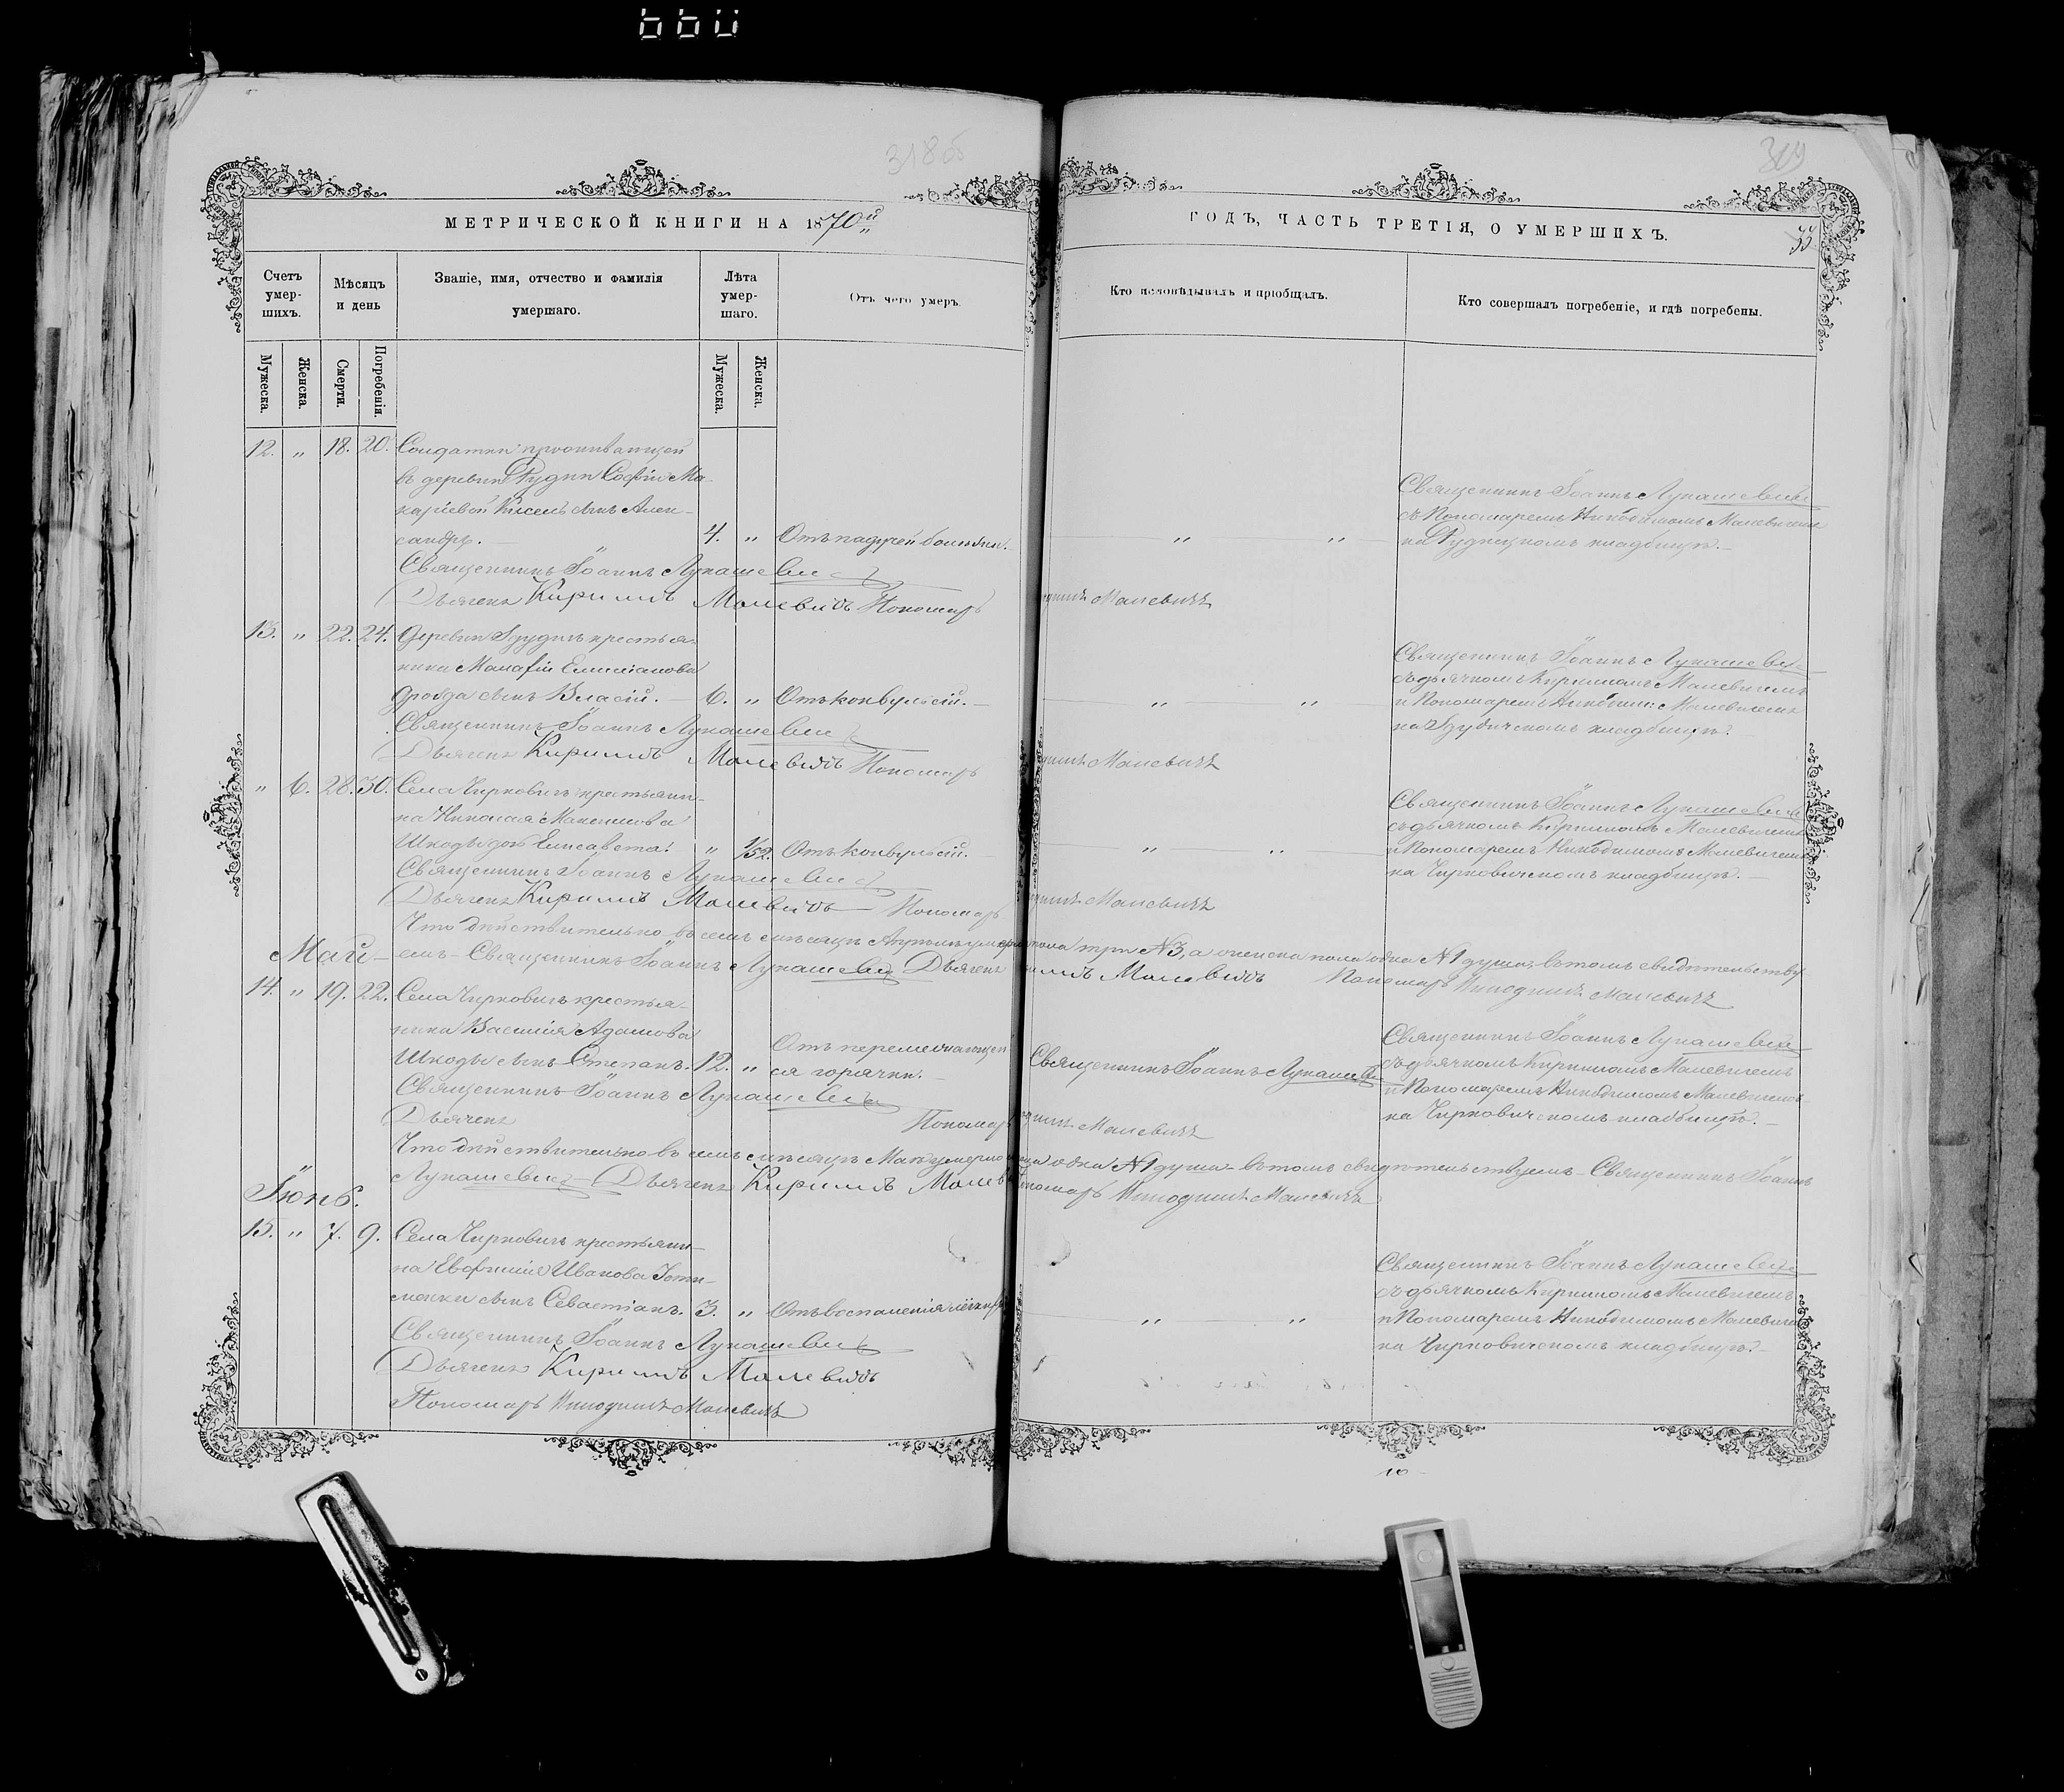 318об
319
МЕТРИЧЕСКОЙ КНИГИ НА 1870й
ГОДЪ, ЧАСТЬ ТРЕТІЯ, О УМЕРШИХЪ.
33
Счетъ умер-шихъ.
Мѣсяцъ и день
Званіе, имя, отчество и фамилія умершаго.
Лѣта умер-шаго.
Отъ чего умеръ.
Кто исповѣдывалъ и пріобщалъ.
Кто совершалъ погребеніе, и гдѣ погребены.
Мужеска.
Женска.
Смерти.
Погребенія.
Мужеска.
Женска.
12. „ 18. 20. Солдатки проживающей
въ деревни Рудни Софіи Ма-
каріевой Кисель сынъ Алек-
сандръ. 4. „ Отъ падучей болѣзни. „ „
Священникъ Іоаннъ Лукашевичъ
съ Пономаремъ Никодимомъ Малевичемъ
на Рудницкомъ кладбищѣ.
Священникъ Іоаннъ Лукашевичъ
Дьячекъ Кириллъ Малевичъ Пономарь Малевичъ
13. „ 22. 24. Деревни крестья-
нина Малафіи Емиліанова
Дрозда сынъ Власій. 6. „ Отъ конвульсій. „ „
Священникъ Іоаннъ Лукашевичъ
съ дьячкомъ Кирилломъ Малевичемъ
и Пономаремъ Никодим: Малевичемъ
на кладбищѣ.
Священникъ Іоаннъ Лукашевичъ
Дьячекъ Кириллъ Малевичъ Пономарь Малевичъ
„ 6. 28. 30. Села Чирковичъ крестьяни-
на Николая
Шкоды дочь Елисавета. „ 1/52. Отъ конвульсій. „ „
Священникъ Іоаннъ Лукашевичъ
съ дьячкомъ Кирилломъ Малевичемъ
и Пономаремъ Никодимомъ Малевичемъ
на Чирковичскомъ кладбищѣ.
Священникъ Іоаннъ Лукашевичъ
Дьячекъ Кириллъ Малевичъ Пономарь Малевичъ
Что дѣйствительно въ семъ мѣсяцѣ Апрѣлѣ умерло пола три №3, а женска пола одна №1 душа, въ томъ свидѣтельству-
емъ – Священникъ Іоаннъ Лукашевичъ Дьячекъ Малевичъ Пономарь Никодимъ Малевичъ
Май
14. „ 19. 22. Села Чирковичъ крестья-
нина Василія Адамова
Шкоды сынъ Степанъ. 12. „ Отъ перемежающей-
ся горячки.
Священникъ Іоаннъ Лукашевичъ
Священникъ Іоаннъ Лукашевичъ
съ дьячкомъ Кирилломъ Малевичемъ
и Пономаремъ Никодимомъ Малевичемъ
на Чирковичскомъ кладбищѣ.
Священникъ Іоаннъ Лукашевичъ
Дьячекъ Пономарь Малевичъ
Что дѣйствительно въ семъ мѣсяцѣ Маѣ умерло одна №1 душа въ томъ свидѣтельствуемъ – Священникъ Іоаннъ
Лукашевичъ – Дьячекъ Кириллъ Малев Пономарь Никодимъ Малевичъ
Іюнь.
15. „ 7. 9. Села Чирковичъ крестьяни-
на Евфимія Иванова
сынъ Севастіанъ. 3. „ Отъ воспаленія лёгкихъ „ „
Священникъ Іоаннъ Лукашевичъ
съ дьячкомъ Кирилломъ Малевичемъ
и Пономаремъ Никодимомъ Малевичемъ
на Чирковичскомъ кладбищѣ.
Священникъ Іоаннъ Лукашевичъ
Дьячекъ Кириллъ Малевичъ
Пономарь Никодимъ Малевичъ